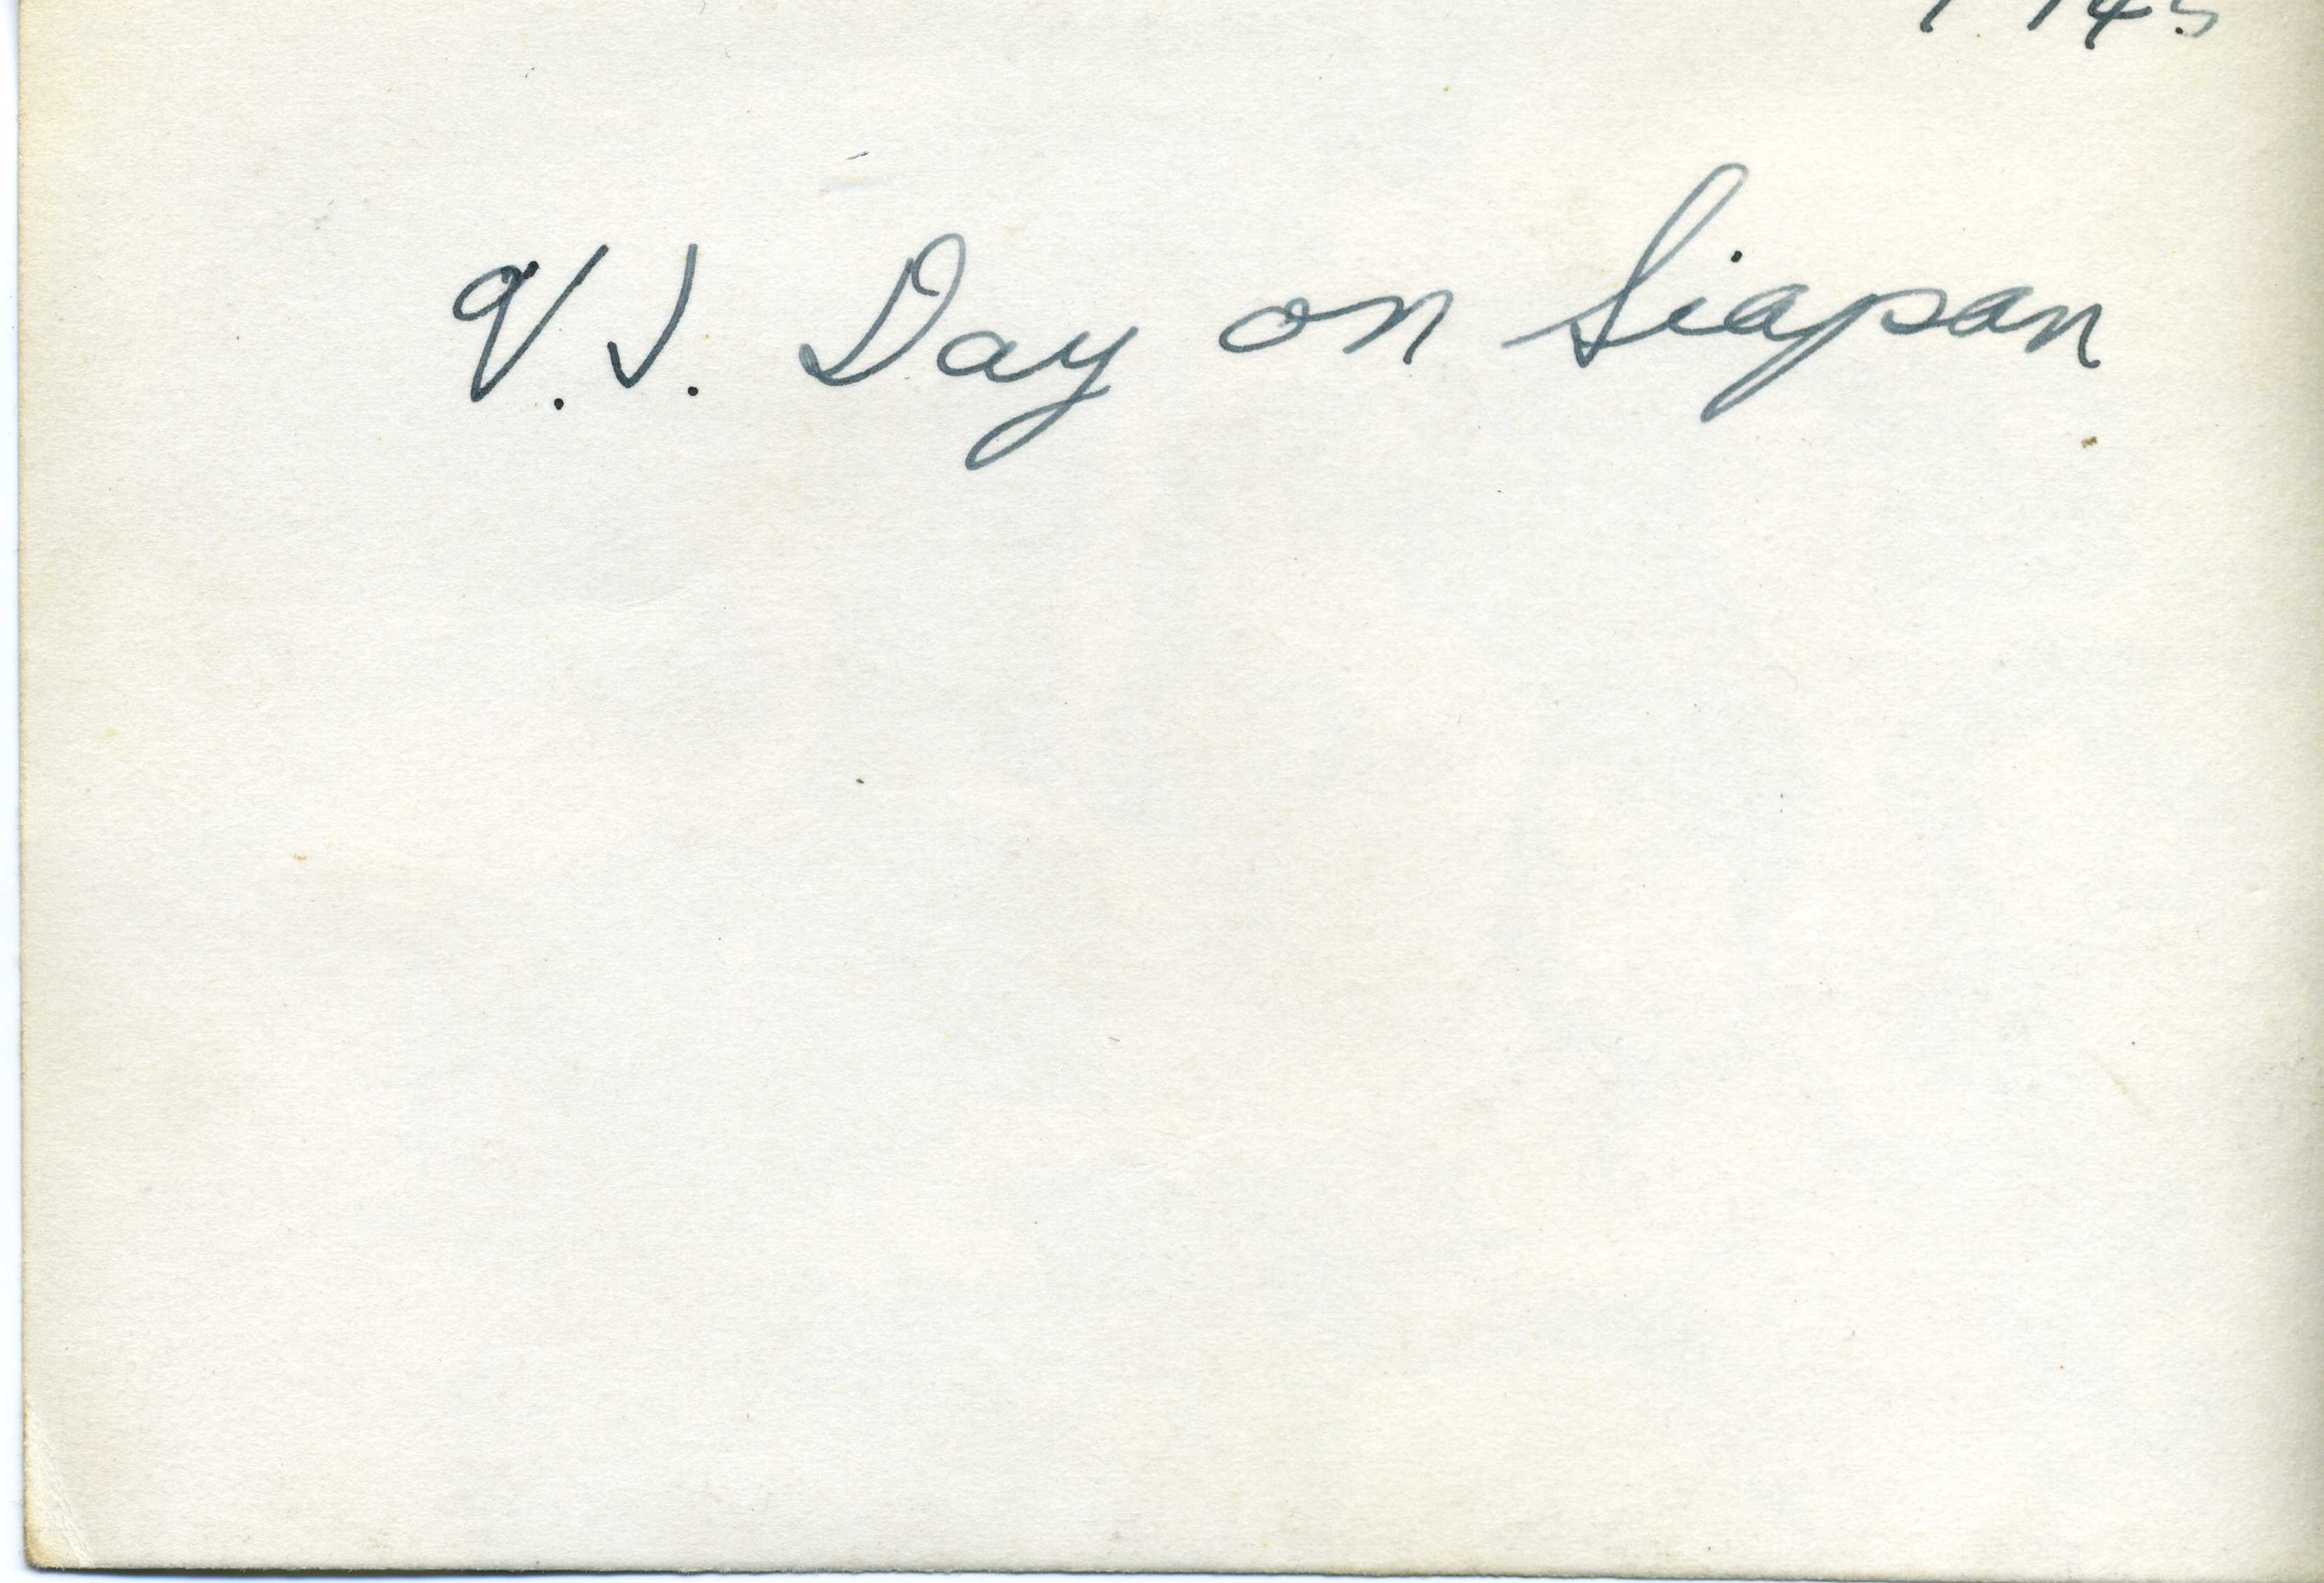 1945
V.J. Day on Siapan